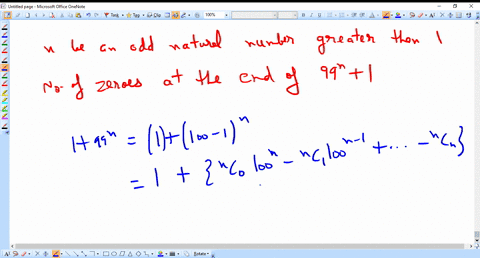 Untitled page - Microsoft OneNote
n be an odd natural number greater than 1
No. of zeroes at the end of 99ⁿ + 1
1 + 99ⁿ = (1) + (100 - 1)ⁿ
= 1 + { ⁿC₀ 100ⁿ - ⁿC₁ 100ⁿ⁻¹ + ... - ⁿCₙ }